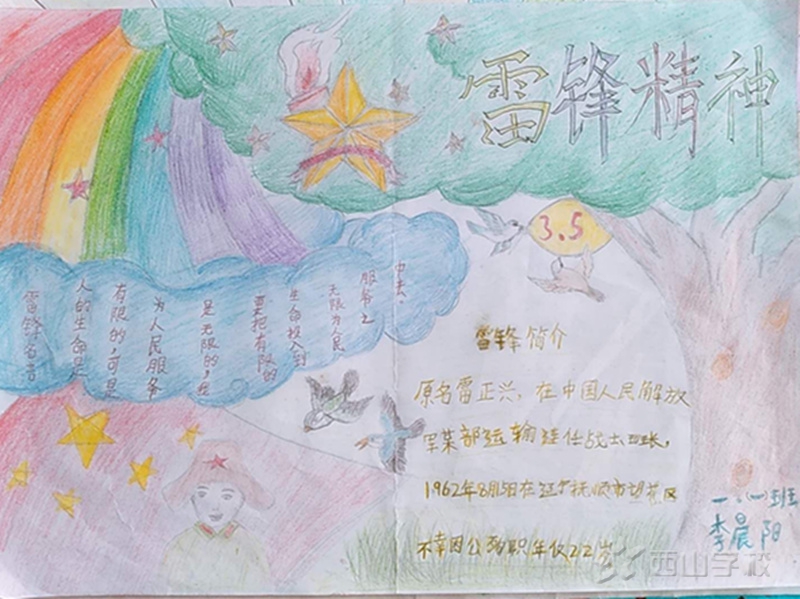 雷锋精神
3.5
雷锋名言
人的生命是
有限的,可是
为人民服务
是无限的,我
要把有限的
生命投入到
无限为人民
服务之
中去。
雷锋简介
原名雷正兴,在中国人民解放
军某部运输连任战士班长,
1962年8月15日在辽宁抚顺市望花区
不幸因公殉职年仅22岁
一、(一)班
李晨阳
西山学校